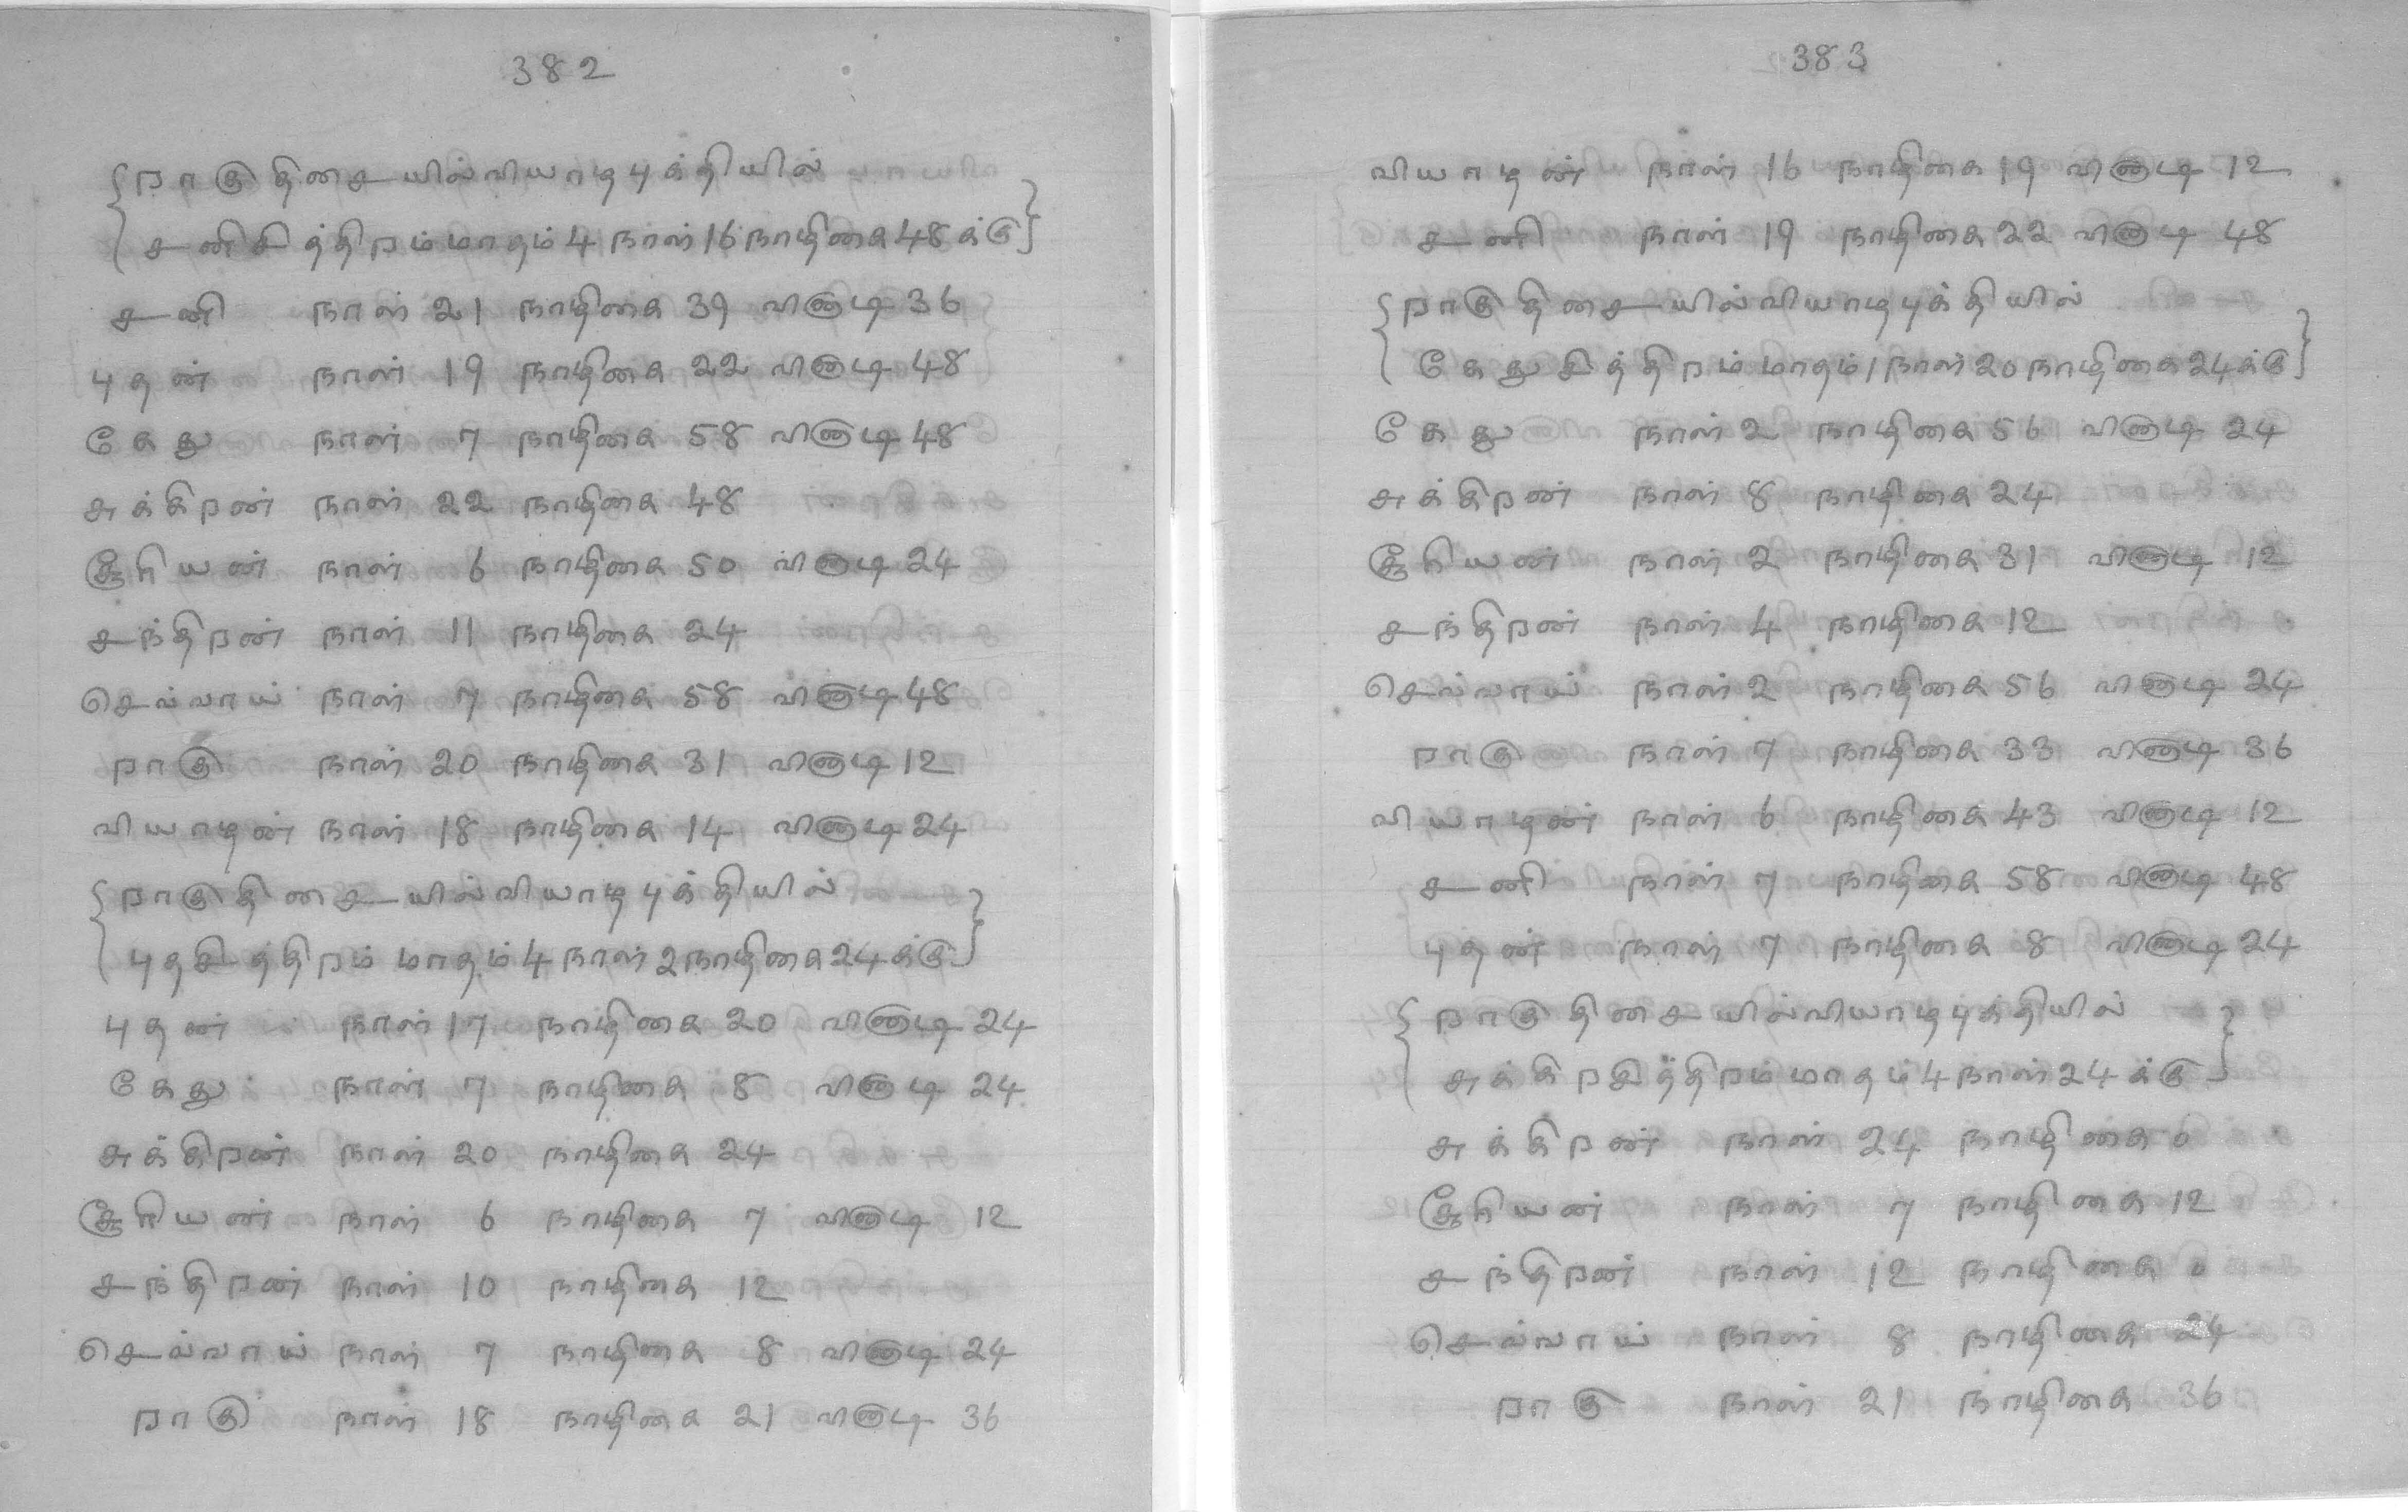 382
றாகுதிசையில்வியாழபுக்தியில்
சனிசித்திறம்மாதம் 4 நாள் 16 நாழிகை 48 க்கு
சனி நாள் 21 நாழிகை 39 வினாடி 36
புதன் நாள் 19 நாழிகை 22 வினாடி 48
கேது நாள் 7 நாழிகை 58 வினாடி 48
சுக்கிறன் நாள் 22 நாழிகை 48
சூரியன் நாள் 6 நாழிகை 50 வினாடி 24
சந்திறன் நாள் 11 நாழிகை 24
செவ்வாய் நாள் 7 நாழிகை 58 வினாடி 48
றாகு நாள் 20 நாழிகை 31 வினாடி 12
வியாழன் நாள் 18 நாழிகை 14 வினாடி 24
றாகுதிசையில்வியாழபுக்தியில்
புதசித்திறம் மாதம் 4 நாள் 2 நாழிகை 24 க்கு
புதன் நாள் 17 நாழிகை 20 வினாடி 24
கேது நாள் 7 நாழிகை 8 வினாடி 24
சுக்கிறன் நாள் 20 நாழிகை 24
சூரியன் நாள் 6 நாழிகை 7 வினாடி 12
சந்திறன் நாள் 10 நாழிகை 12
செவ்வாய் நாள் 7 நாழிகை 8 வினாடி 24
றாகு நாள் 18 நாழிகை 21 வினாடி 36
383
வியாழன் நாள் 16 நாழிகை 19 வினாடி 12
சனி நாள் 19 நாழிகை 22 வினாடி 48
றாகுதிசையில்வியாழபுக்தியில்
கேதுசித்திறம் மாதம் 1 நாள் 20 நாழிகை 24 க்கு
கேது நாள் 2 நாழிகை 56 வினாடி 24
சுக்கிறன் நாள் 8 நாழிகை 24
சூரியன் நாள் 2 நாழிகை 31 வினாடி 12
சந்திறன் நாள் 4 நாழிகை 12
செவ்வாய் நாள் 2 நாழிகை 56 வினாடி 24
றாகு நாள் 7 நாழிகை 33 வினாடி 36
வியாழன் நாள் 6 நாழிகை 43 வினாடி 12
சனி நாள் 7 நாழிகை 58 வினாடி 48
புதன் நாள் 7 நாழிகை 8 வினாடி 24
றாகு திசையில்வியாழபுக்தியில்
சுக்கிறசித்திறம் மாதம் 4 நாள் 24 க்கு
சுக்கிறன் நாள் 24 நாழிகை 0
சூரியன் நாள் 7 நாழிகை 12
சந்திறன் நாள் 12 நாழிகை 0
செவ்வாய் நாள் 8 நாழிகை 24
றாகு நாள் 21 நாழிகை 36